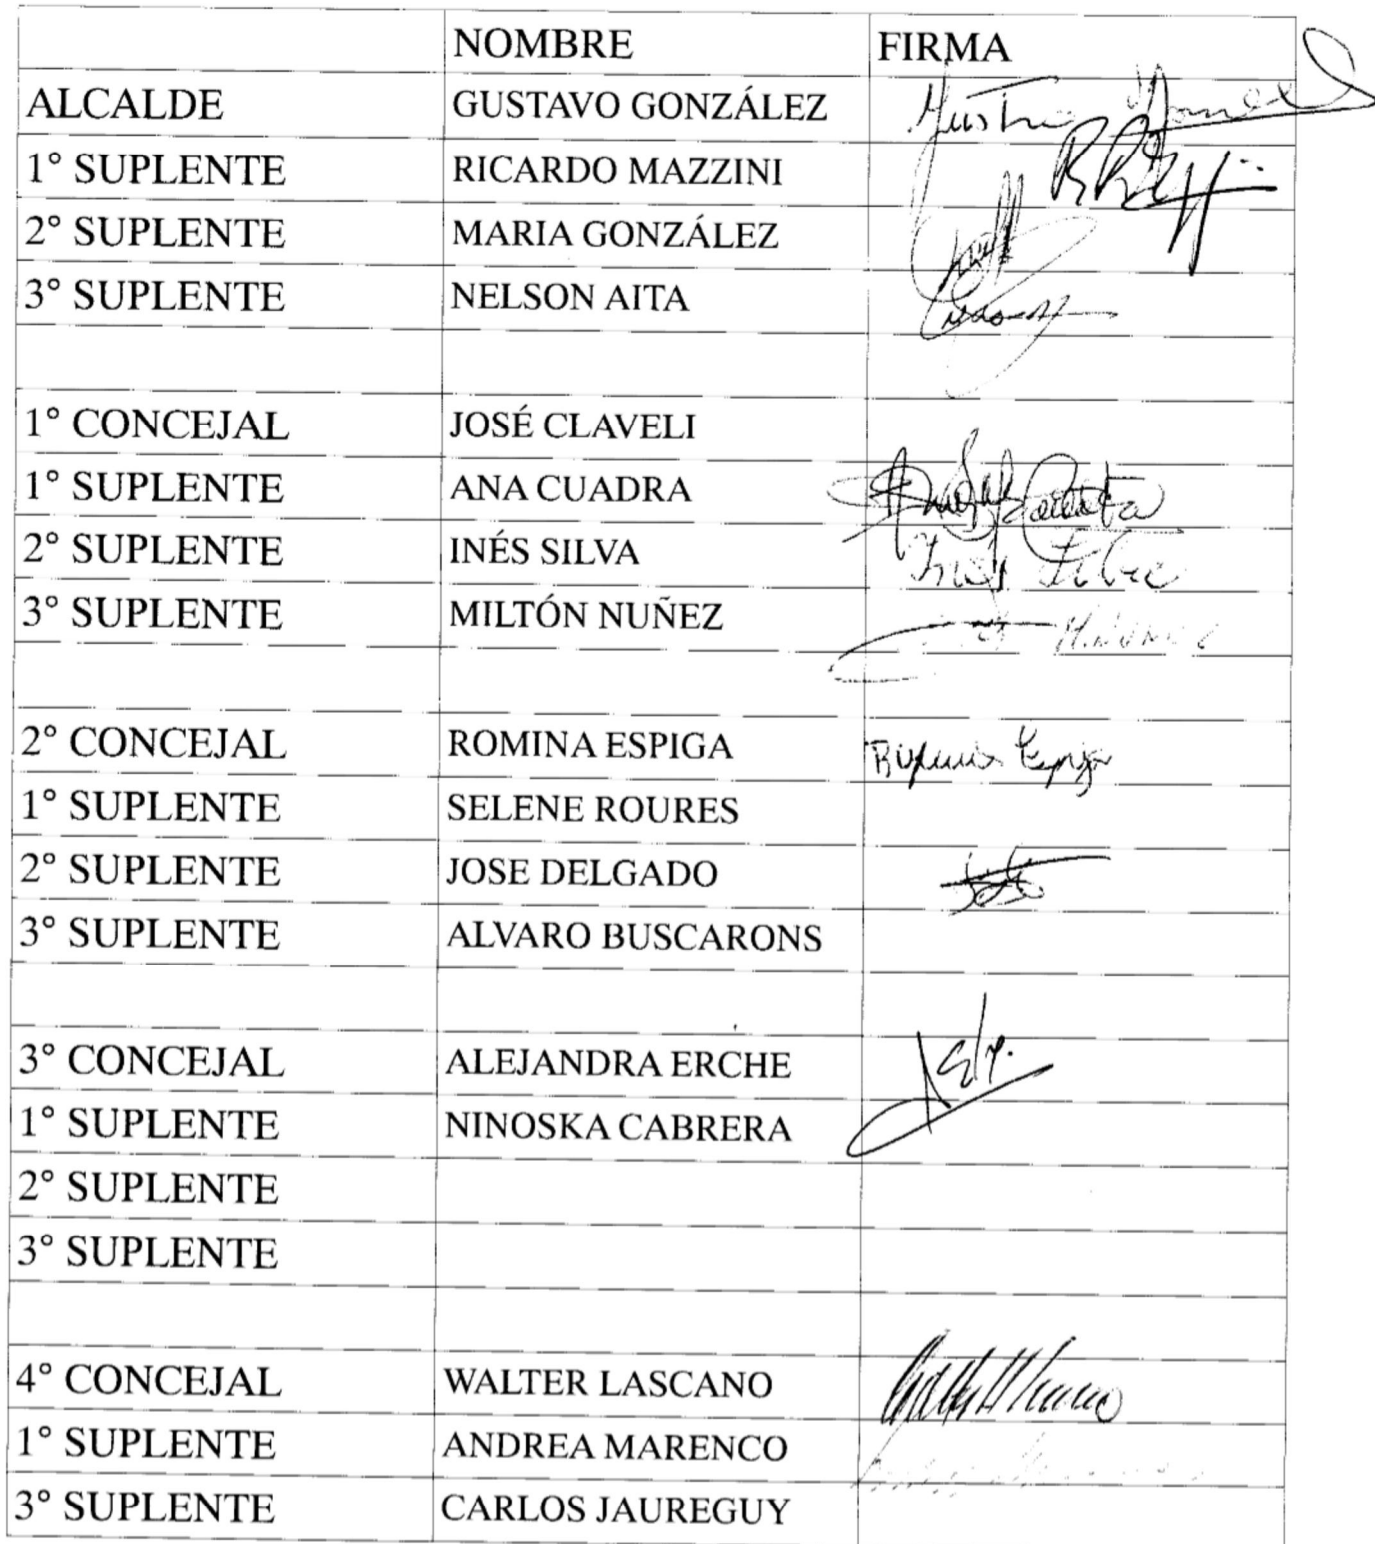 NOMBRE FIRMA
ALCALDE GUSTAVO GONZÁLEZ
1° SUPLENTE RICARDO MAZZINI
2° SUPLENTE MARIA GONZÁLEZ
3° SUPLENTE NELSON AITA
1° CONCEJAL JOSÉ CLAVELI
1° SUPLENTE ANA CUADRA
2° SUPLENTE INÉS SILVA Inés Silva
3° SUPLENTE MILTÓN NUÑEZ
2° CONCEJAL ROMINA ESPIGA Romina Espiga
1° SUPLENTE SELENE ROURES
2° SUPLENTE JOSE DELGADO
3° SUPLENTE ALVARO BUSCARONS
3° CONCEJAL ALEJANDRA ERCHE
1° SUPLENTE NINOSKA CABRERA
2° SUPLENTE
3° SUPLENTE
4° CONCEJAL WALTER LASCANO
1° SUPLENTE ANDREA MARENCO
3° SUPLENTE CARLOS JAUREGUY